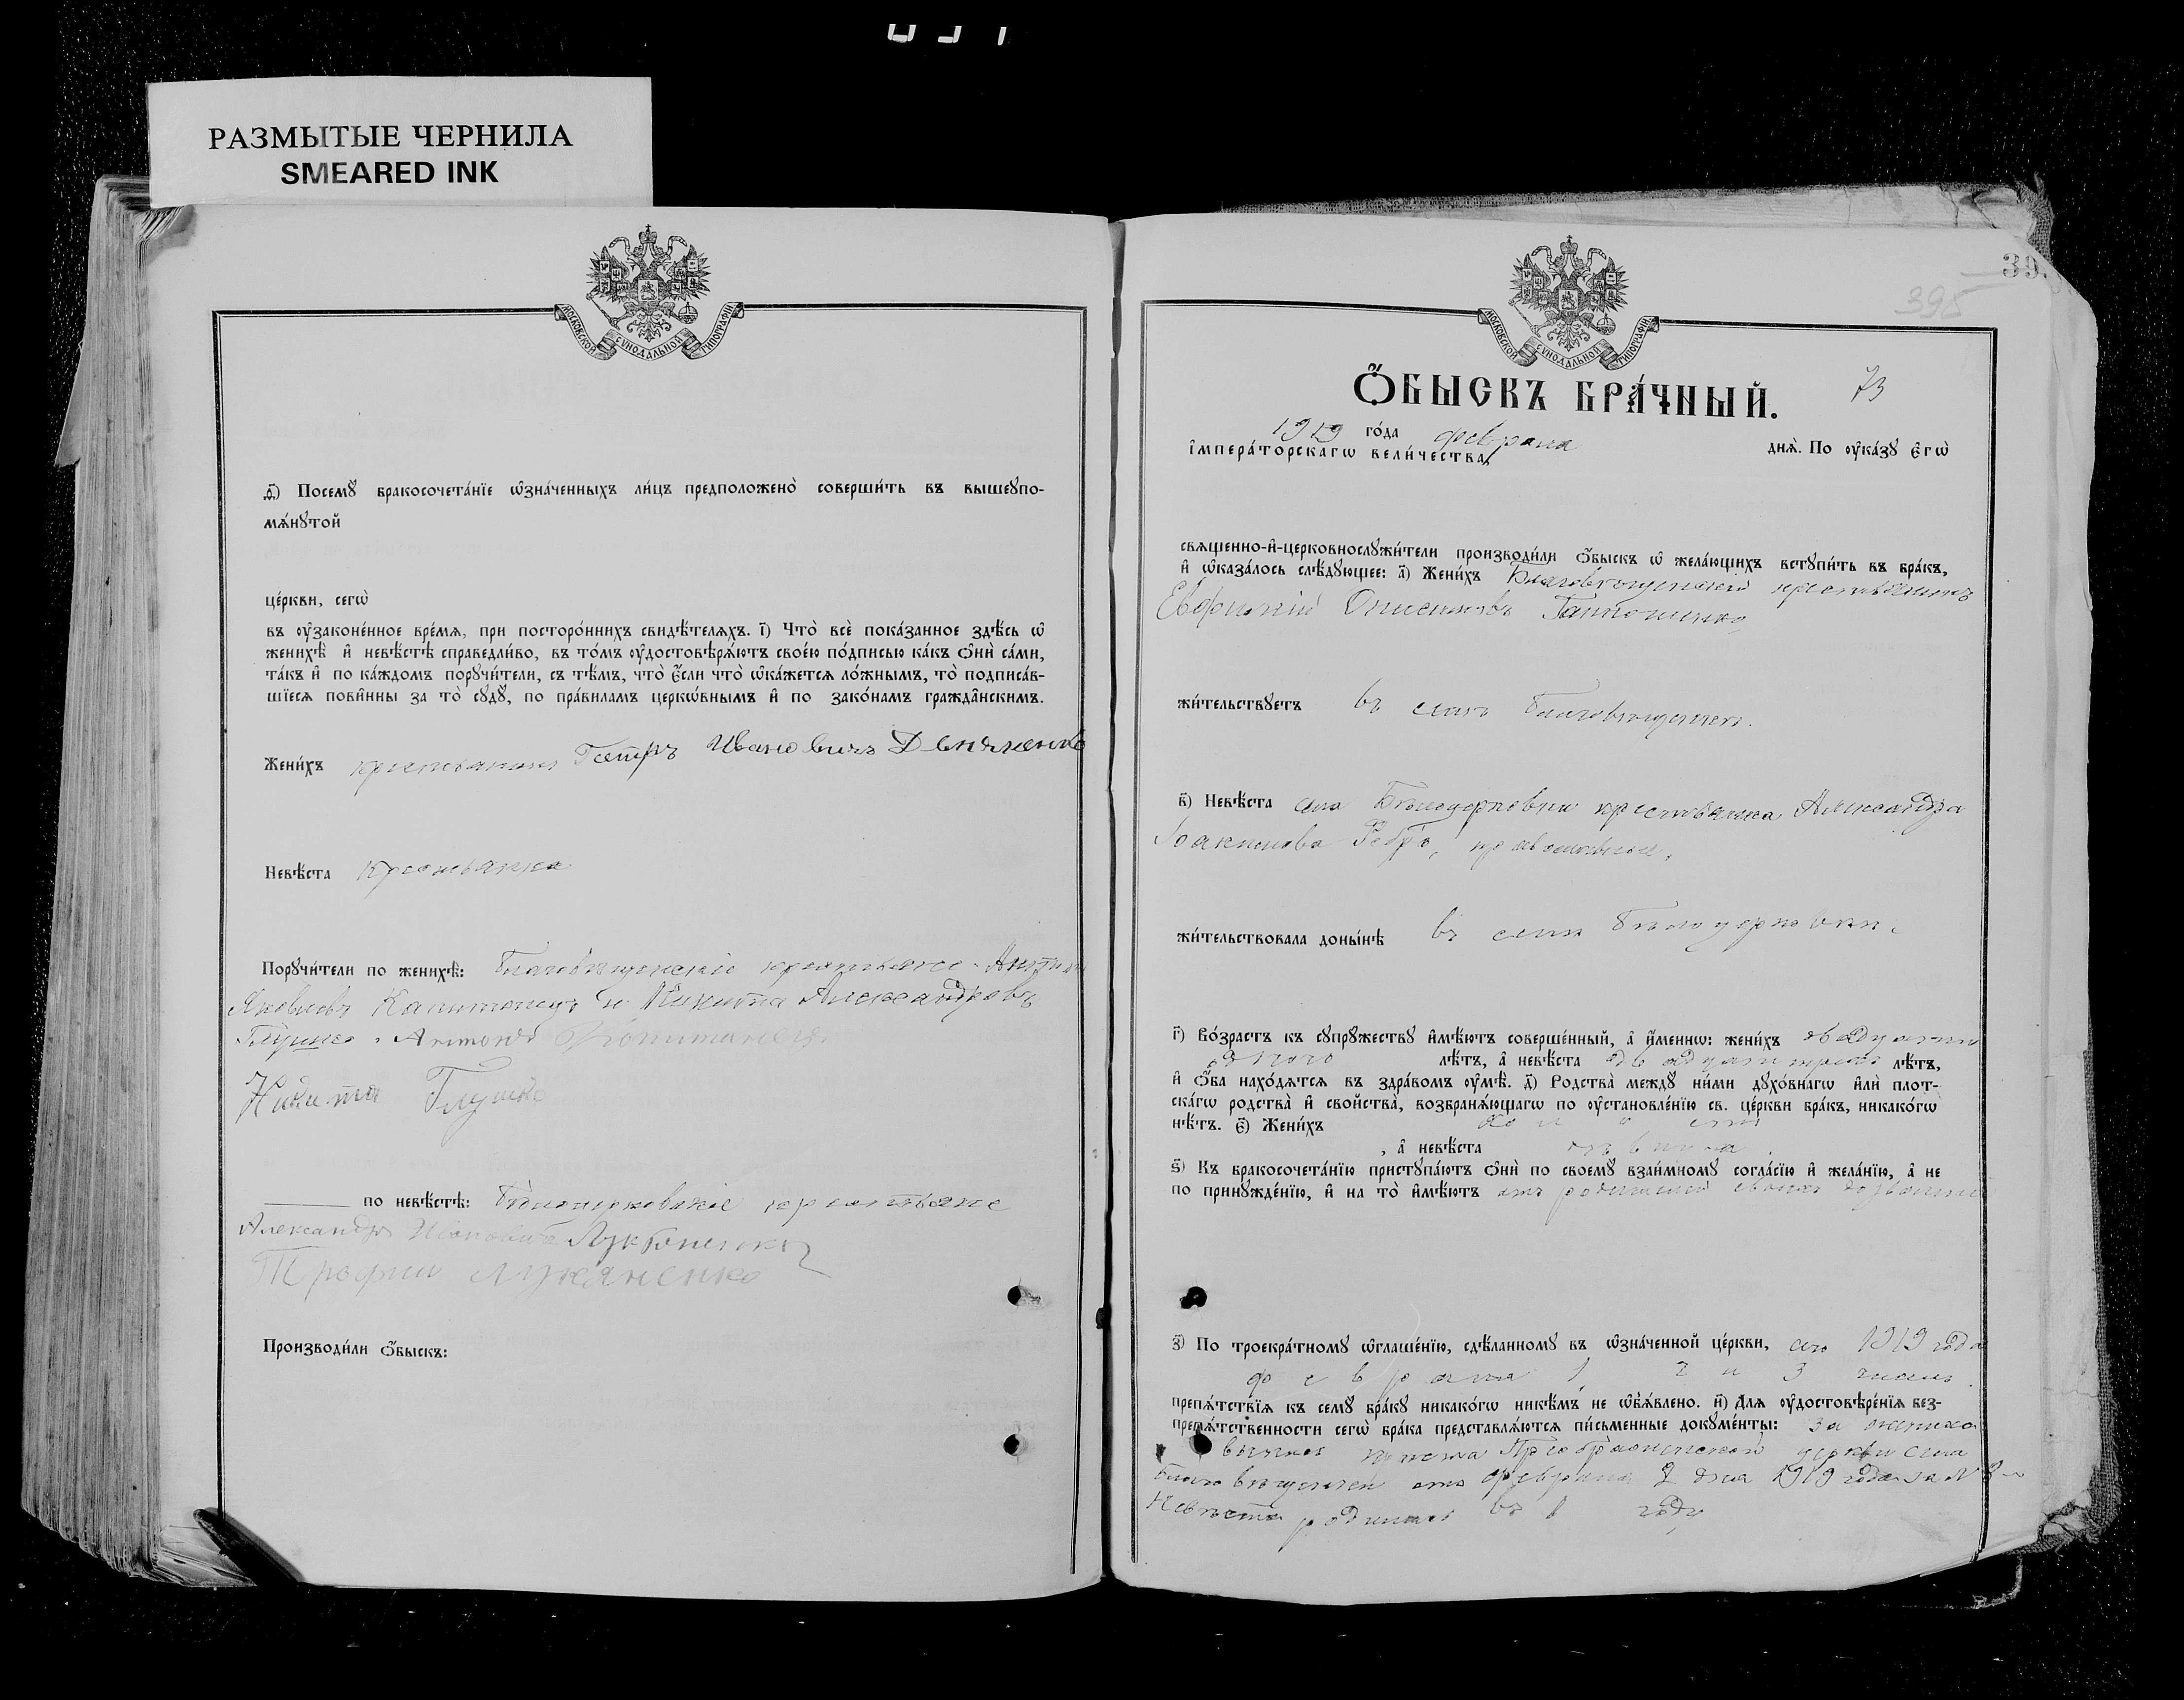 РАЗМЫТЫЕ ЧЕРНИЛА
SMEARED INK
МОСКОВСКОЙ СѴНОДАЛЬНОЙ ТИПОГРАФІИ
ѳ҃) Посемꙋ̀ бракосочета́нїе ѡ҆зна́ченныхъ ли́цъ предположено̀ соверши́ть въ вышеꙋпо-
мѧ́нꙋтой
це́ркви, сегѡ̀
въ ᲂу҆зако́ненное вре́мѧ, при посторо́ннихъ свидѣ́телѧхъ. і҃) Что̀ всѐ пока́занное здѣ́сь ѡ҆
женихѣ̀ и҆ невѣ́стѣ справедли́во, въ то́мъ ᲂу҆достовѣрѧ́ютъ свое́ю по́дписью ка́къ ѻ҆нѝ са́ми,
та́къ и҆ по ка́ждомъ порꙋчи́тели, съ тѣ́мъ, что̀ є҆́сли что̀ ѡ҆ка́жетсѧ ло́жнымъ, то̀ подписа́в-
шїесѧ пови́нны за то̀ сꙋдꙋ̀, по пра́виламъ церко́внымъ и҆ по зако́намъ гражда́нскимъ.
Жени́хъ крестьянинъ Петръ Ивановичъ
Невѣ́ста Крестьянка
Порꙋчи́тели по женихѣ̀: Благовѣщенскіе крестьяне - Антонъ
Яковлевъ Капитонецъ и Никита Александровъ
Глушко. Антонъ Копитонецъ
Никита Глушко
по невѣ́стѣ: Бѣлоцерковскіе крестьяне
Александръ Ивановичъ
Трофим Лукяненко
Производи́ли ѻ҆́быскъ:
39
395
МОСКОВСКОЙ СѴНОДАЛЬНОЙ ТИПОГРАФІИ
Ѻ҆́БЫСКЪ БРА́ЧНЫЙ. 73
1919 го́да февраля днѧ̀. По ᲂу҆ка́зꙋ є҆гѡ̀
і҆мпера́торскагѡ вели́чества,
свѧще́нно-и҆-церковнослꙋжи́тели производи́ли ѻ҆́быскъ ѡ҆ жела́ющихъ встꙋпи́ть въ бра́къ,
и҆ ѡ҆каза́лось слѣ́дꙋющее: а҃) Жени́хъ Благовѣщенскій крестьянинъ
Евфимій Онисимовъ
жи́тельствꙋетъ въ селѣ Благовѣщенкѣ.
в҃) Невѣ́ста села Бѣлоцерковки крестьянка Александра
Іоакимова Ребро, православная.
жи́тельствовала доны́нѣ въ селѣ Бѣлоцерковки.
г҃) Во́зрастъ къ сꙋпрꙋ́жествꙋ и҆мѣ́ютъ соверше́нный, а҆ и҆́меннѡ: жени́хъ двадцати
одного лѣ́тъ, а҆ невѣ́ста двадцати трехъ лѣ́тъ,
и҆ ѻ҆́ба нахо́дѧтсѧ въ здра́вомъ ᲂу҆мѣ̀. д҃) Родства̀ междꙋ̀ ни́ми дꙋхо́внагѡ и҆лѝ плот-
ска́гѡ родства̀ и҆ сво́йства̀, возбранѧ́ющагѡ по ᲂу҆становле́нїю св. це́ркви бра́къ, никако́гѡ
нѣ́тъ. є҃) Жени́хъ холостъ
, а҆ невѣ́ста дѣвица.
ѕ҃) Къ бракосочета́нїю пристꙋпа́ютъ ѻ҆нѝ по своемꙋ̀ взаи́мномꙋ согла́сїю и҆ жела́нїю, а҆ не
по принꙋжде́нїю, и҆ на то̀ и҆мѣ́ютъ отъ родителей своихъ дозволеніе
з҃) По троекра́тномꙋ ѡ҆глаше́нїю, сдѣ́ланномꙋ въ ѡ҆зна́ченной це́ркви, сего 1919 года
февраля 1, 2 и 3 числъ.
препѧ́тствїѧ къ семꙋ̀ бра́кꙋ никако́гѡ никѣ́мъ не ѡ҆бъѧ́влено. и҃) Длѧ ᲂу҆достовѣре́нїѧ без-
препѧ́тственности сегѡ̀ бра́ка представлѧ́ютсѧ пи́сьменные докꙋме́нты: за жениха
причта Преображенской церкви села
Благовѣщенки отъ февраля 2 дня 1919 года за №
Невѣста родилась въ 1 году